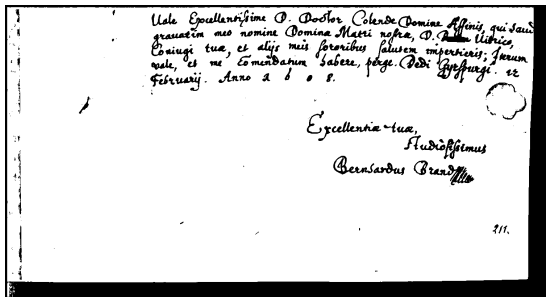 Vale Excellentissime D. Doctor Colende Domine Affinis, qui haud
gravatim meo nomine Dominæ Matri nostræ, D. Ulrico,
Coniugi tuæ, et alijs meis sororibus salutem impertieris; Iterum
vale, et me Comendatum habere, perge. Dedi 12
Februarij. Anno 1608.
Excellentiæ tuæ,
studiosissimus
Bernhardus Brand
211.